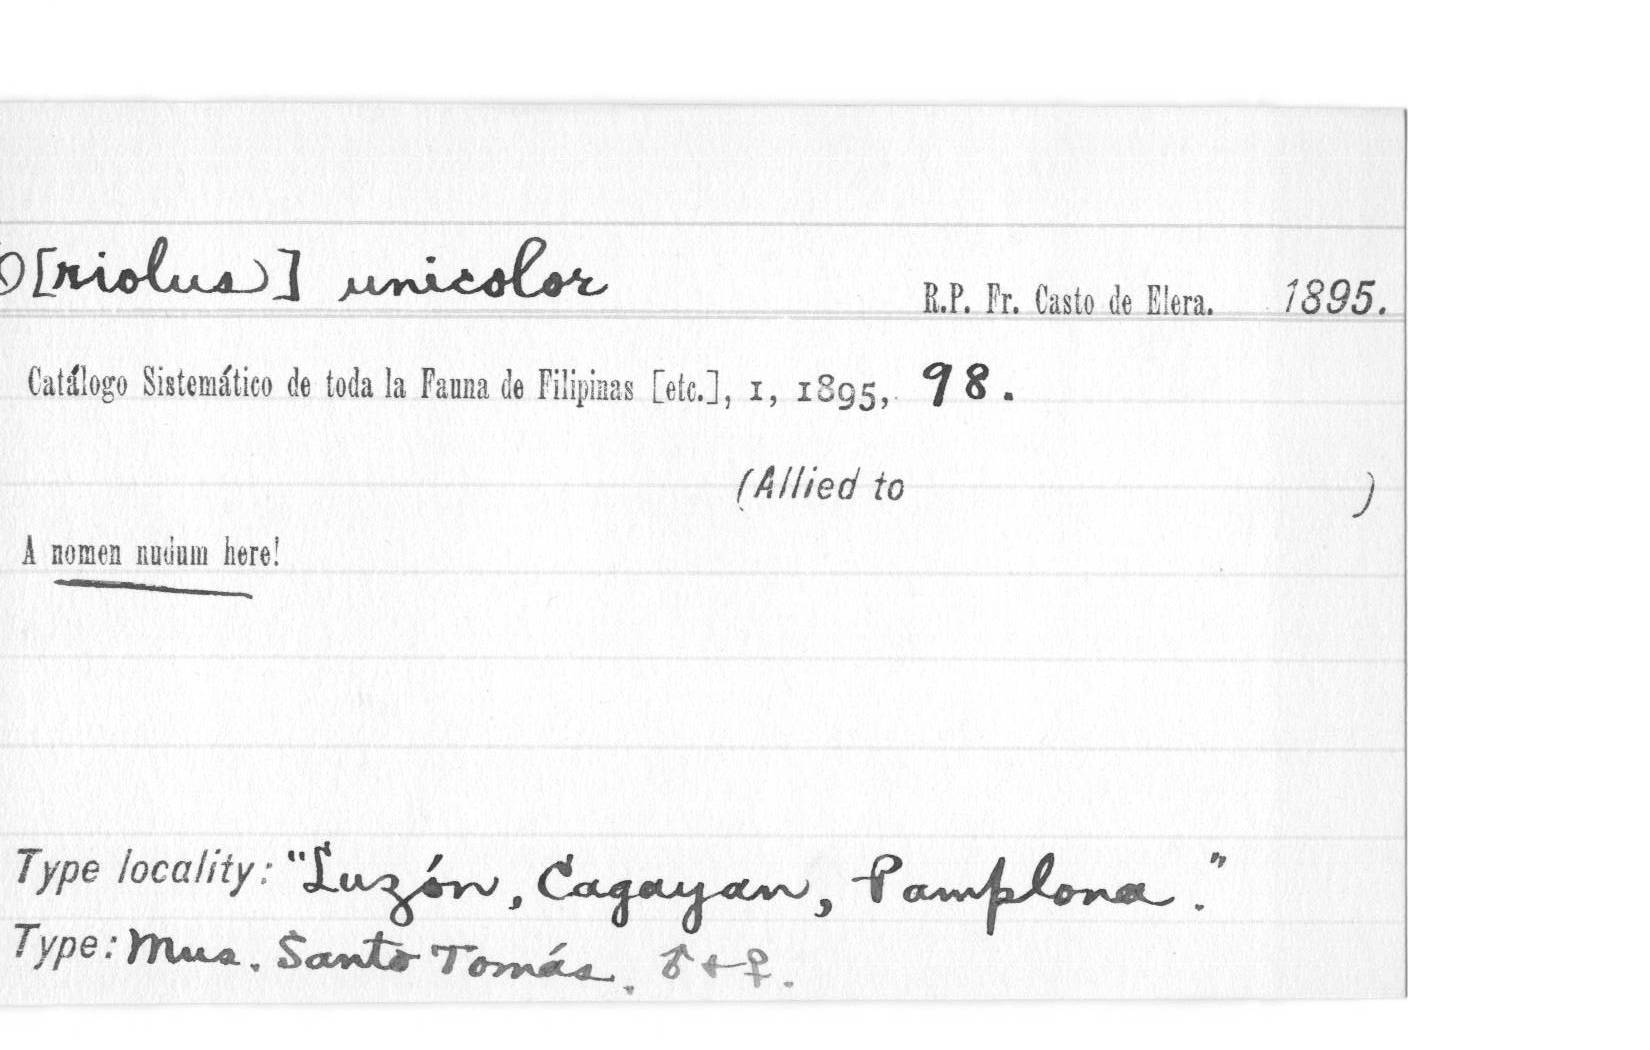 O[riolus] unicolor R.P. Fr. Casto de Elera. 1895.
Catálogo Sistemático de toda la Fauna de Filipinas [etc.], 1, 1895, 98.
(Allied to )
A nomen nudum here!
Type locality: "Luzón, Cagayan, Pamplona."
Type: Mus. Santo Tomás. ♂ + ♀.